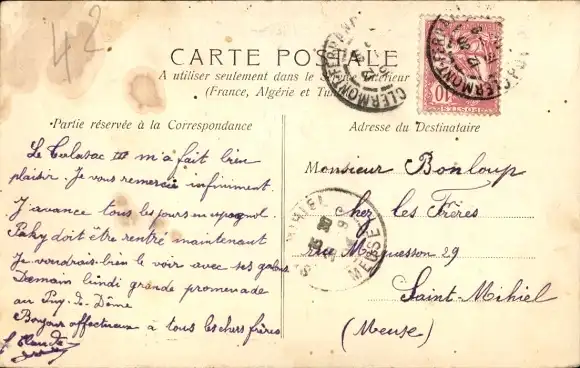 42
CARTE POSTALE
A utiliser seulement dans le Service Intérieur
(France, Algérie et Tunisie)
Partie réservée à la Correspondance
Adresse du Destinataire
Le III m'a fait bien
plaisir. Je vous remercie infiniment.
J'avance tous les jours en espagnol.
Paky doit être rentré maintenant
Je voudrais bien le voir avec ses galons
Demain lundi grande promenade
au Puy-de-Dôme
Bonjour affectueux à tous les chers frères
f. Claude
Monsieur Bonloup
chez les Frères
rue 29
Saint-Mihiel
(Meuse)
CLERMONT-FERRAND
CLERMONT-FERRAND
ST MIHIEL
MEUSE
10
POSTES